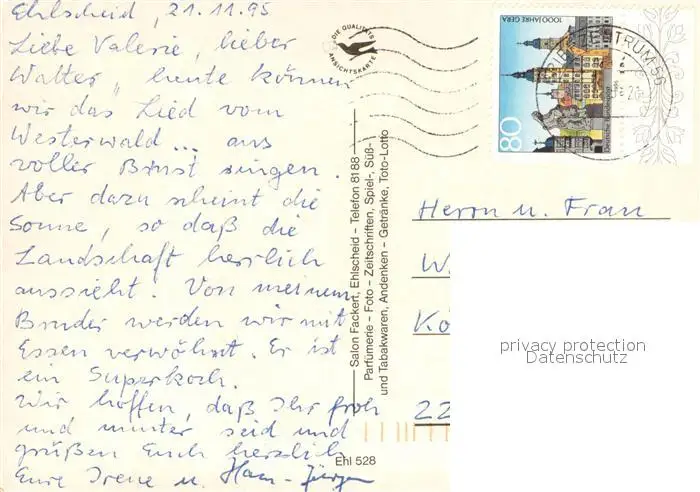 Ehlscheid, 21.11.95
Liebe Valerie, lieber
Walter, heute können
wir das Lied vom
Westerwald... aus
voller Brust singen.
Aber dazu scheint die
Sonne, so daß die
Landschaft herrlich
aussieht. Von meinem
Bruder werden wir mit
Essen verwöhnt. Er ist
ein Superkoch.
Wir hoffen, daß Ihr froh
und munter seid und
grüßen Euch herzlich
Eure Irene u. Hans-Jürgen
DIE QUALITÄTS
ANSICHTSKARTE
Salon Fackert, Ehlscheid – Telefon 8188
Parfümerie - Foto – Zeitschriften, Spiel-, Süß-
und Tabakwaren, Andenken – Getränke, Toto-Lotto
Ehl 528
1000 JAHRE GERA
80
Deutsche Bundespost
ZENTRUM 56
Herrn u. Frau
W
Kö
22
privacy protection
Datenschutz